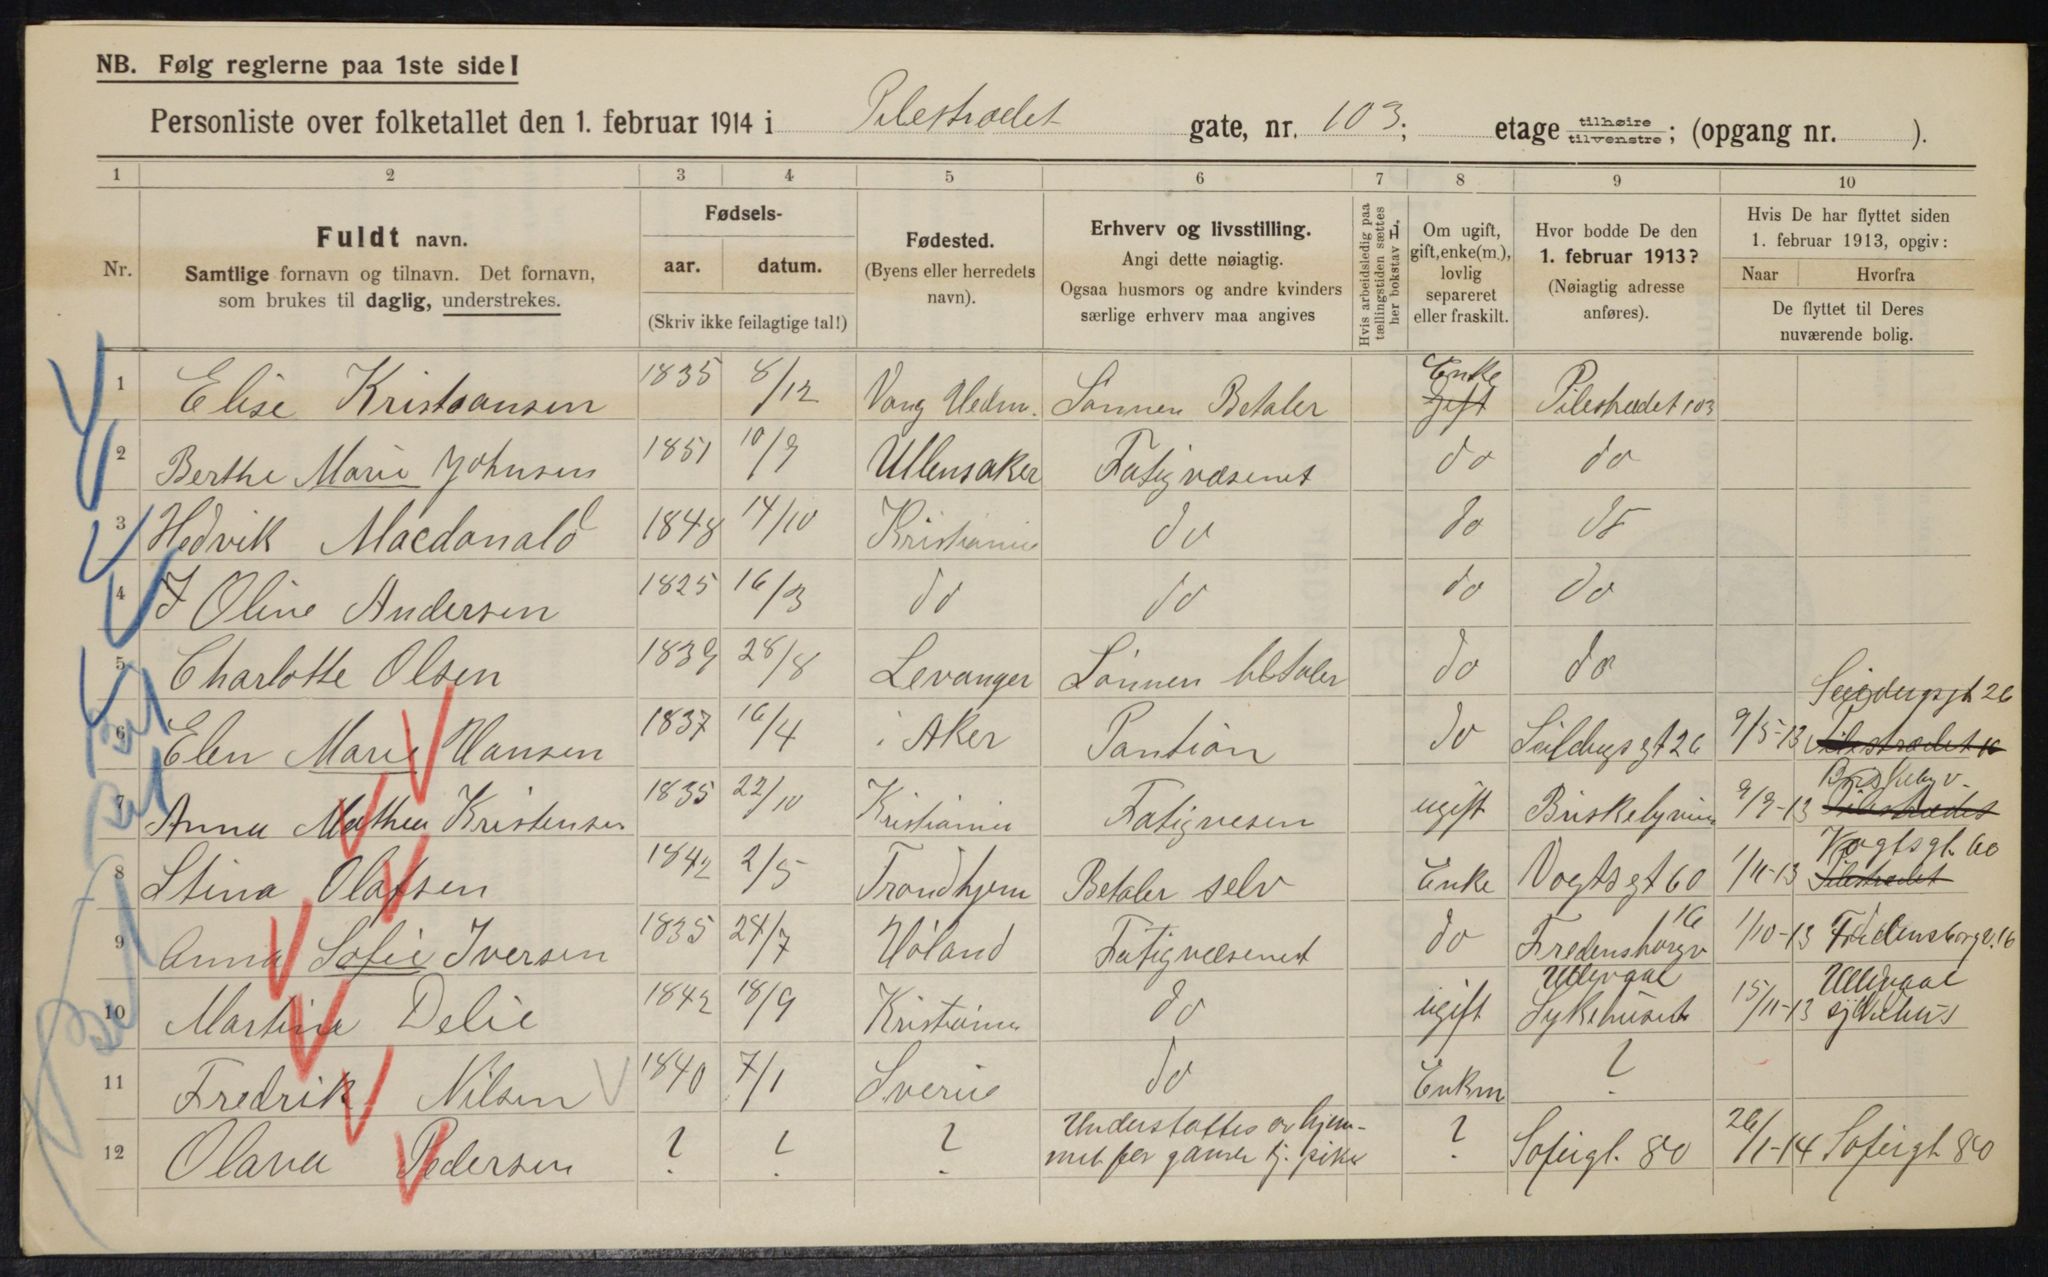 NB. Følg reglerne paa 1ste side!
Personliste over folketallet den 1. februar 1914 i Pilestrædet gate, nr. 103; etage tilhøire tilvenstre; (opgang nr. ).
1 2 3 4 5 6 7 8 9 10
Nr.
Fuldt navn.
Samtlige fornavn og tilnavn. Det fornavn,
som brukes til daglig, understrekes.
Fødsels-
aar. datum.
(Skriv ikke feilagtige tal!)
Fødested.
(Byens eller herredets
navn).
Erhverv og livsstilling.
Angi dette nøiagtig.
Ogsaa husmors og andre kvinders
særlige erhverv maa angives
Hvis arbeidsledig paa
tællingstiden sættes
her bokstav L.
Om ugift,
gift, enke(m.),
lovlig
separeret
eller fraskilt.
Hvor bodde De den
1. februar 1913?
(Nøiagtig adresse
anføres).
Hvis De har flyttet siden
1. februar 1913, opgiv:
Naar Hvorfra
De flyttet til Deres
nuværende bolig.
1 Elise Kristiansen 1835 8/12 Vang Hedm. Sønnen Betaler Enke gift Pilestrædet 103
2 Berthe Marie Johnsen 1851 10/9 Ullensaker Fatigvæsenet do do
3 Hedvik Macdonald 1848 14/10 Kristiania do do do
4 J Oline Andersen 1825 16/3 do do do do
5 Charlotte Olsen 1839 28/8 Levanger Sønnen betaler do do
6 Elen Marie Hansen 1837 16/4 i Aker Pantion do Seildugsgt 26 9/5-13 Seildugsgt 26 Pilestrædet
7 Anna Mathea Kristensen 1835 22/10 Kristiania Fatigvesen ugift Briskebyveien 9/9-13 Briskebyv. Pilestrædet
8 Stina Olafsen 1842 2/5 Trondhjem Betaler selv Enke Vogtsgt 60 1/11-13 Vogtsgt. 60 Pilestrædet
9 Anna Sofie Iversen 1835 24/7 Høland Fatigvæsenet do Fredensborgv 16 1/10-13 Fredensborgv. 16
10 Martine Delie 1842 18/9 Kristiania do ugift Ullevaal Sykehuset 15/11-13 Ullevaal sykehus
11 Fredrik Nilsen 1840 7/1 Sverie do Enkm ?
12 Olava Pedersen ? ? ? Understøttes av hjemmet for gamle tj. piker ? Sofiegt. 80 26/1-14 Sofiegt 80